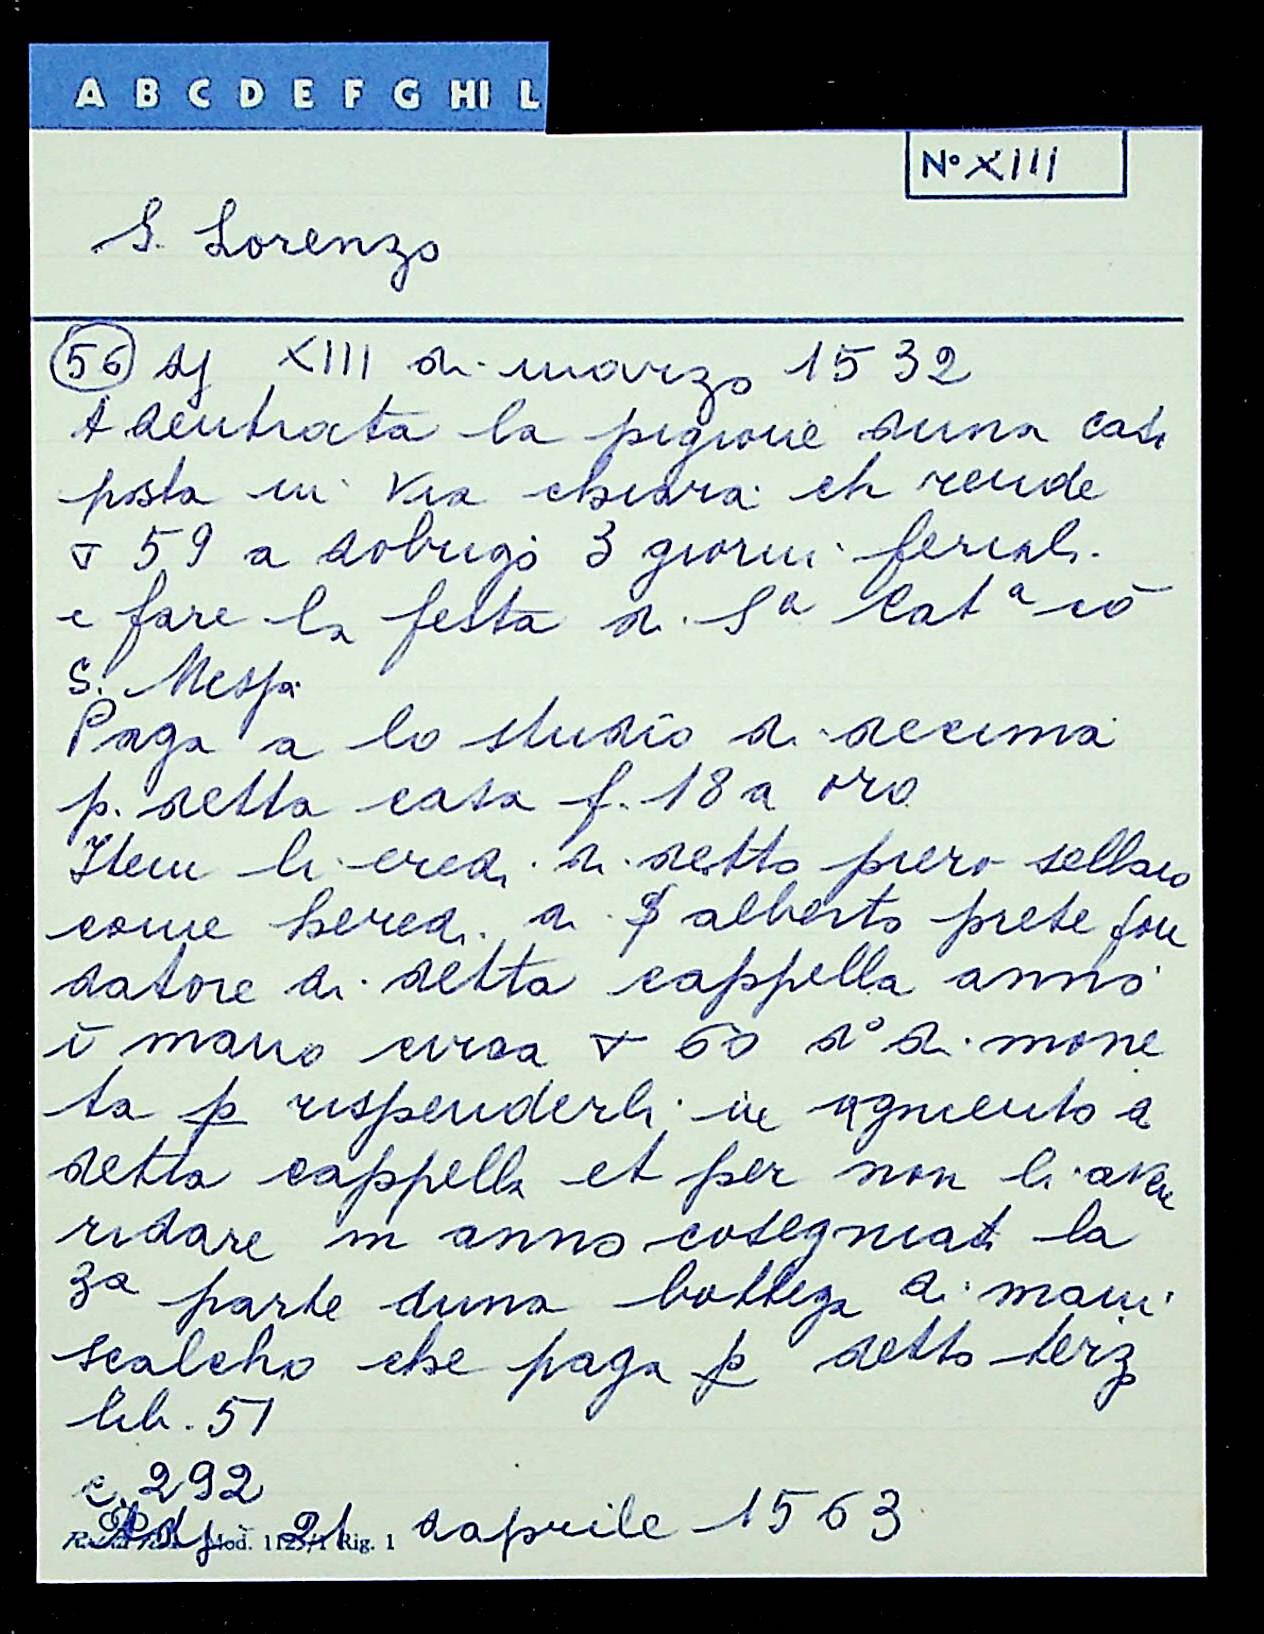 A B C D E F G HI L
N° XIII
S. Lorenzo
56 dj XIII di marzo 1532
A dentrata la pigione duna casa
posta in via chiara ch rende
▽ 59 a dobrigo 3 giorni feriali
e fare la festa di Sa Cata cō
S. Messa
Paga a lo studio di decima
p. detta casa f. 18 a oro
Item li eredi di detto piero sellaio
come heredi di S alberto prete fon
datore di detta cappella anno
ī mano circa ▽ 60 do di mone
ta p rispenderli in agmento a
detta cappella et per non li aver
ridare in anno cosegniati la
3a parte duna bottega di mani
scalcho che paga p detto terzo
lib. 51
c. 292
Adj 21 daprile 1563
Mod. 1125/1 Rig. 1